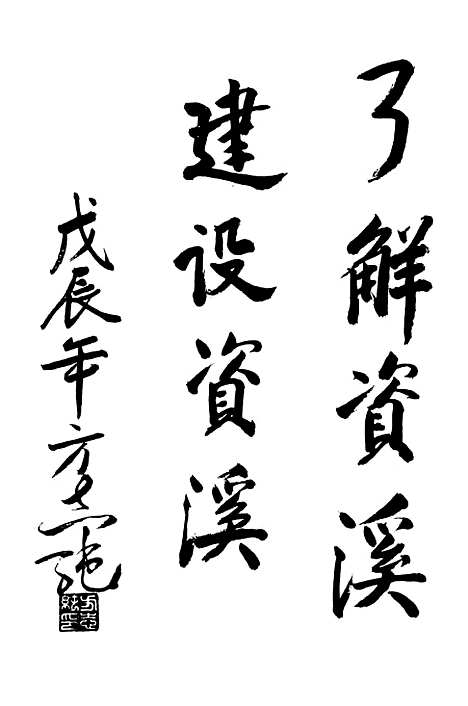 了解資溪
建设資溪
戊辰年方志纯